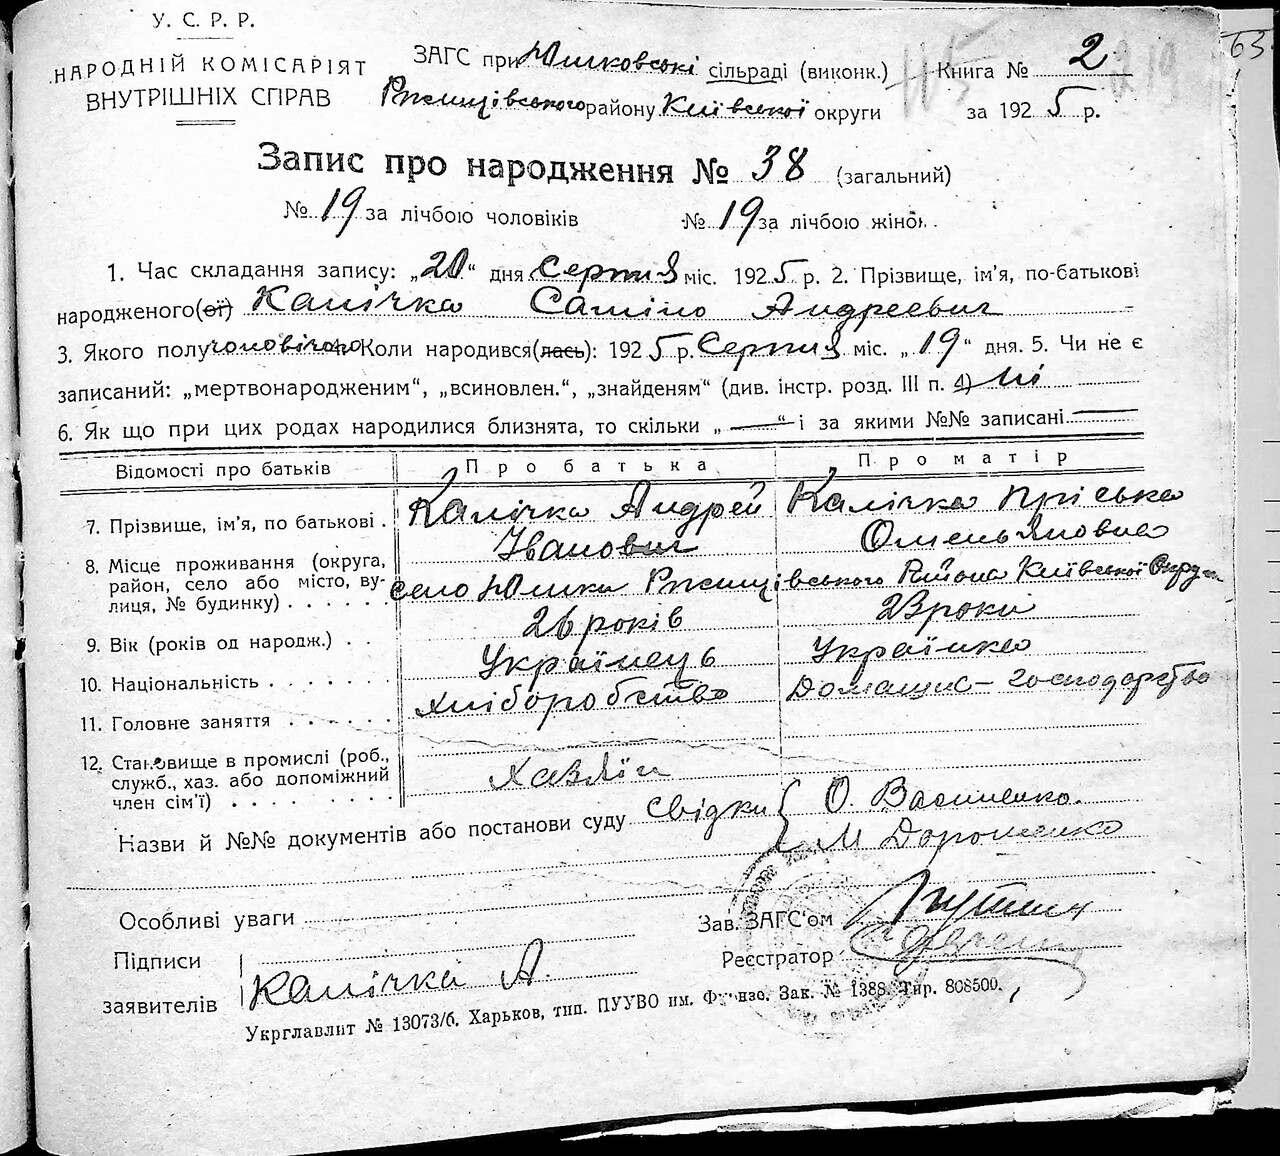 У. С. Р. Р.
НАРОДНІЙ КОМІСАРІЯТ
ВНУТРІШНІХ СПРАВ
ЗАГС при Юшковські сільраді (виконк.)
Ржищівського району Київської округи
Книга № 2
за 1925 р.
63
Запис про народження № 38 (загальний)
№ 19 за лічбою чоловіків № 19 за лічбою жінок.
1. Час складання запису: „20“ дня Серпня міс. 1925 р. 2. Прізвище, ім’я, по-батькові
народженого(ої) Калічка Андреевич
3. Якого полу чоловічого Коли народився(лась): 1925 р. Серпня міс. „19“ дня. 5. Чи не є
записаний: „мертвонародженим“, „всиновлен.“, „знайденям“ (див. інстр. розд. III п. 4) ні
6. Як що при цих родах народилися близнята, то скільки „—“ і за якими №№ записані —
Відомості про батьків Про батька Про матір
7. Прізвище, ім’я, по батькові . Калічка Андрей Іванович Калічка Пріська Омельяновна
8. Місце проживання (округа,
район, село або місто, ву-
лиця, № будинку) . . . . . . село Юшки Ржищівського Района Київської Округи
9. Вік (років од народж.) . . 26 років 23 роки
10. Національність . . . . . . . Українець Українка
11. Головне заняття . . . . . . Хліборобство Домашнє-господарство
12. Становище в промислі (роб.,
служб., хаз. або допоміжний
член сім’ї) . . . . . . . . . . Хазяїн
Назви й №№ документів або постанови суду Свідки { О. Василенко.
М Дорошенко
Особливі уваги
Зав. ЗАГС’ом
Підписи
заявителів Калічка А.
Реєстратор
Укрглавлит № 13073/б. Харьков, тип. ПУУВО им. Фрунзе. Зак. № 1388. Тир. 808500.